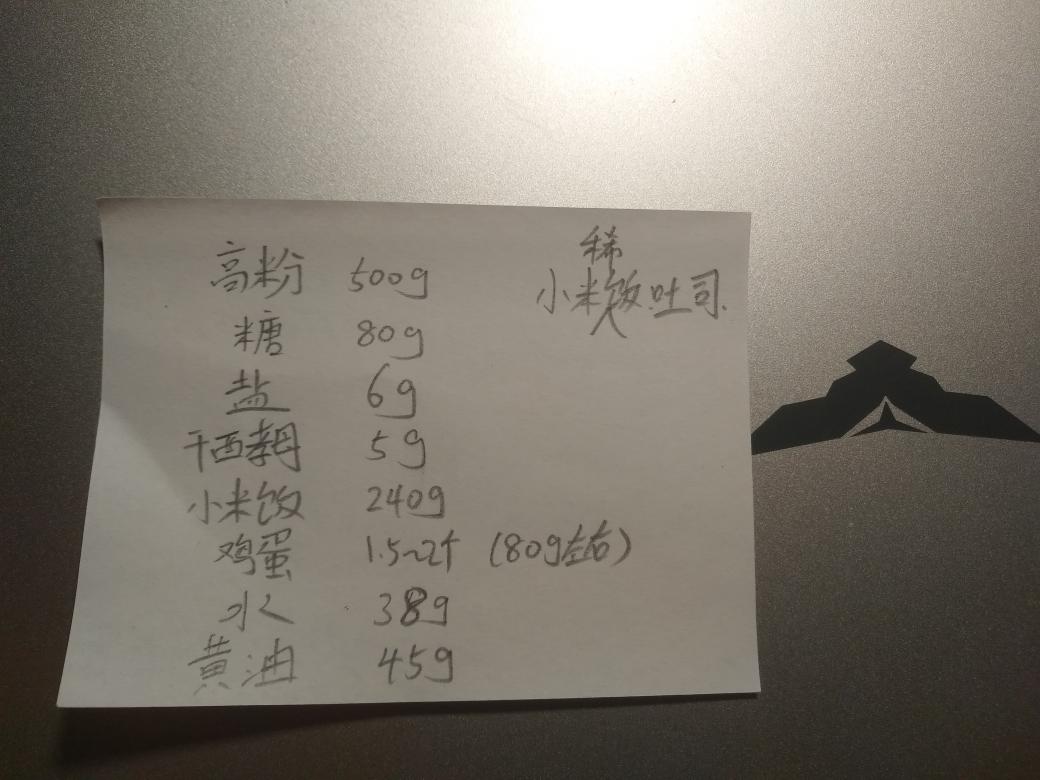 稀
小米饭吐司.
高粉 500g
糖 80g
盐 6g
干西孝母 5g
小米饭 240g
鸡蛋 1.5~2个 (80g左右)
水 38g
黄油 45g